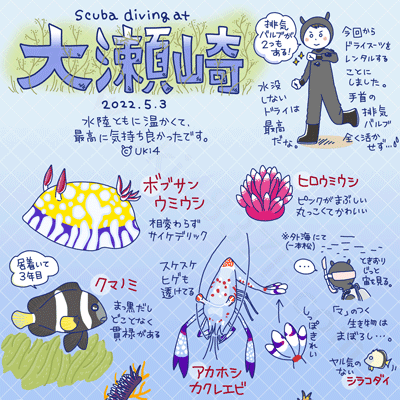 Scuba diving at
大瀬崎
2022.5.3
水陸ともに温かくて、
最高に気持ち良かったです。
©UKI4
排気
バルブが
2つも
ある!
今回から
ドライスーツを
レンタルする
ことに
しました。
手首の
排気
バルブ
全く活か
せず…
水没
しない
ドライは
最高
だな。
ボブサン
ウミウシ
相変わらず
サイケデリック
ヒロウミウシ
ピンクがまぶしい
丸っこくてかわいい
居着いて
3年目
クマノミ
まっ黒だし
どことなく
貫禄がある
スケスケ
ヒゲも
透けてる
アカホシ
カクレエビ
しっぽ
きれい
※外海にて
(一本松)
…
ときおり
じっと
宙を見る。
「マ」のつく
生き物は
まぼろし…。
ヤル気の
ない
シラコダイ